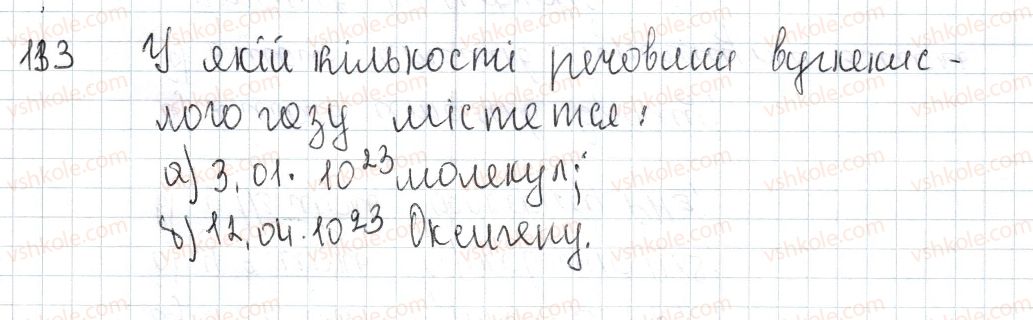 133 У якій кількості речовини вуглекис -
лого газу містется:
а) 3,01 · 10²³ молекул;
б) 12,04 · 10²³ Оксигену.